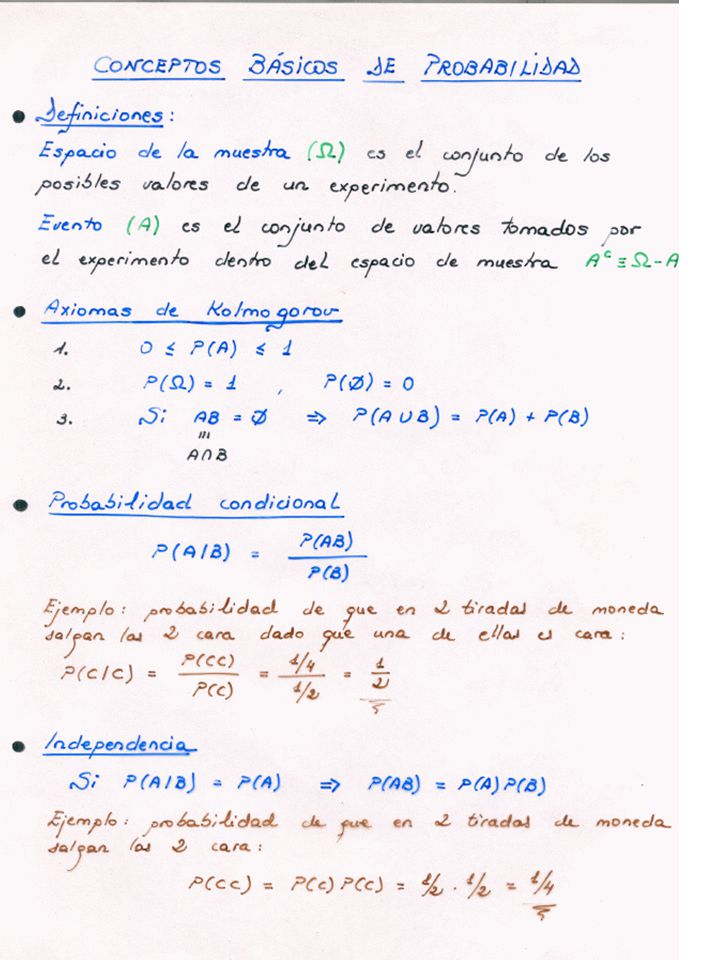 CONCEPTOS BÁSICOS DE PROBABILIDAD
• Definiciones:
Espacio de la muestra (Ω) es el conjunto de los
posibles valores de un experimento.
Evento (A) es el conjunto de valores tomados por
el experimento dentro del espacio de muestra Aᶜ ≡ Ω - A
• Axiomas de Kolmogorov
1. 0 ≤ P(A) ≤ 1
2. P(Ω) = 1 , P(Ø) = 0
3. Si AB = Ø ⇒ P(A ∪ B) = P(A) + P(B)
A ∩ B
• Probabilidad condicional
P(A/B) = P(AB) / P(B)
Ejemplo: probabilidad de que en 2 tiradas de moneda
salgan las 2 cara dado que una de ellas es cara:
P(C/C) = P(CC) / P(C) = 1/4 / 1/2 = 1/2
• Independencia
Si P(A/B) = P(A) ⇒ P(AB) = P(A)P(B)
Ejemplo: probabilidad de que en 2 tiradas de moneda
salgan las 2 cara:
P(CC) = P(C)P(C) = 1/2 · 1/2 = 1/4